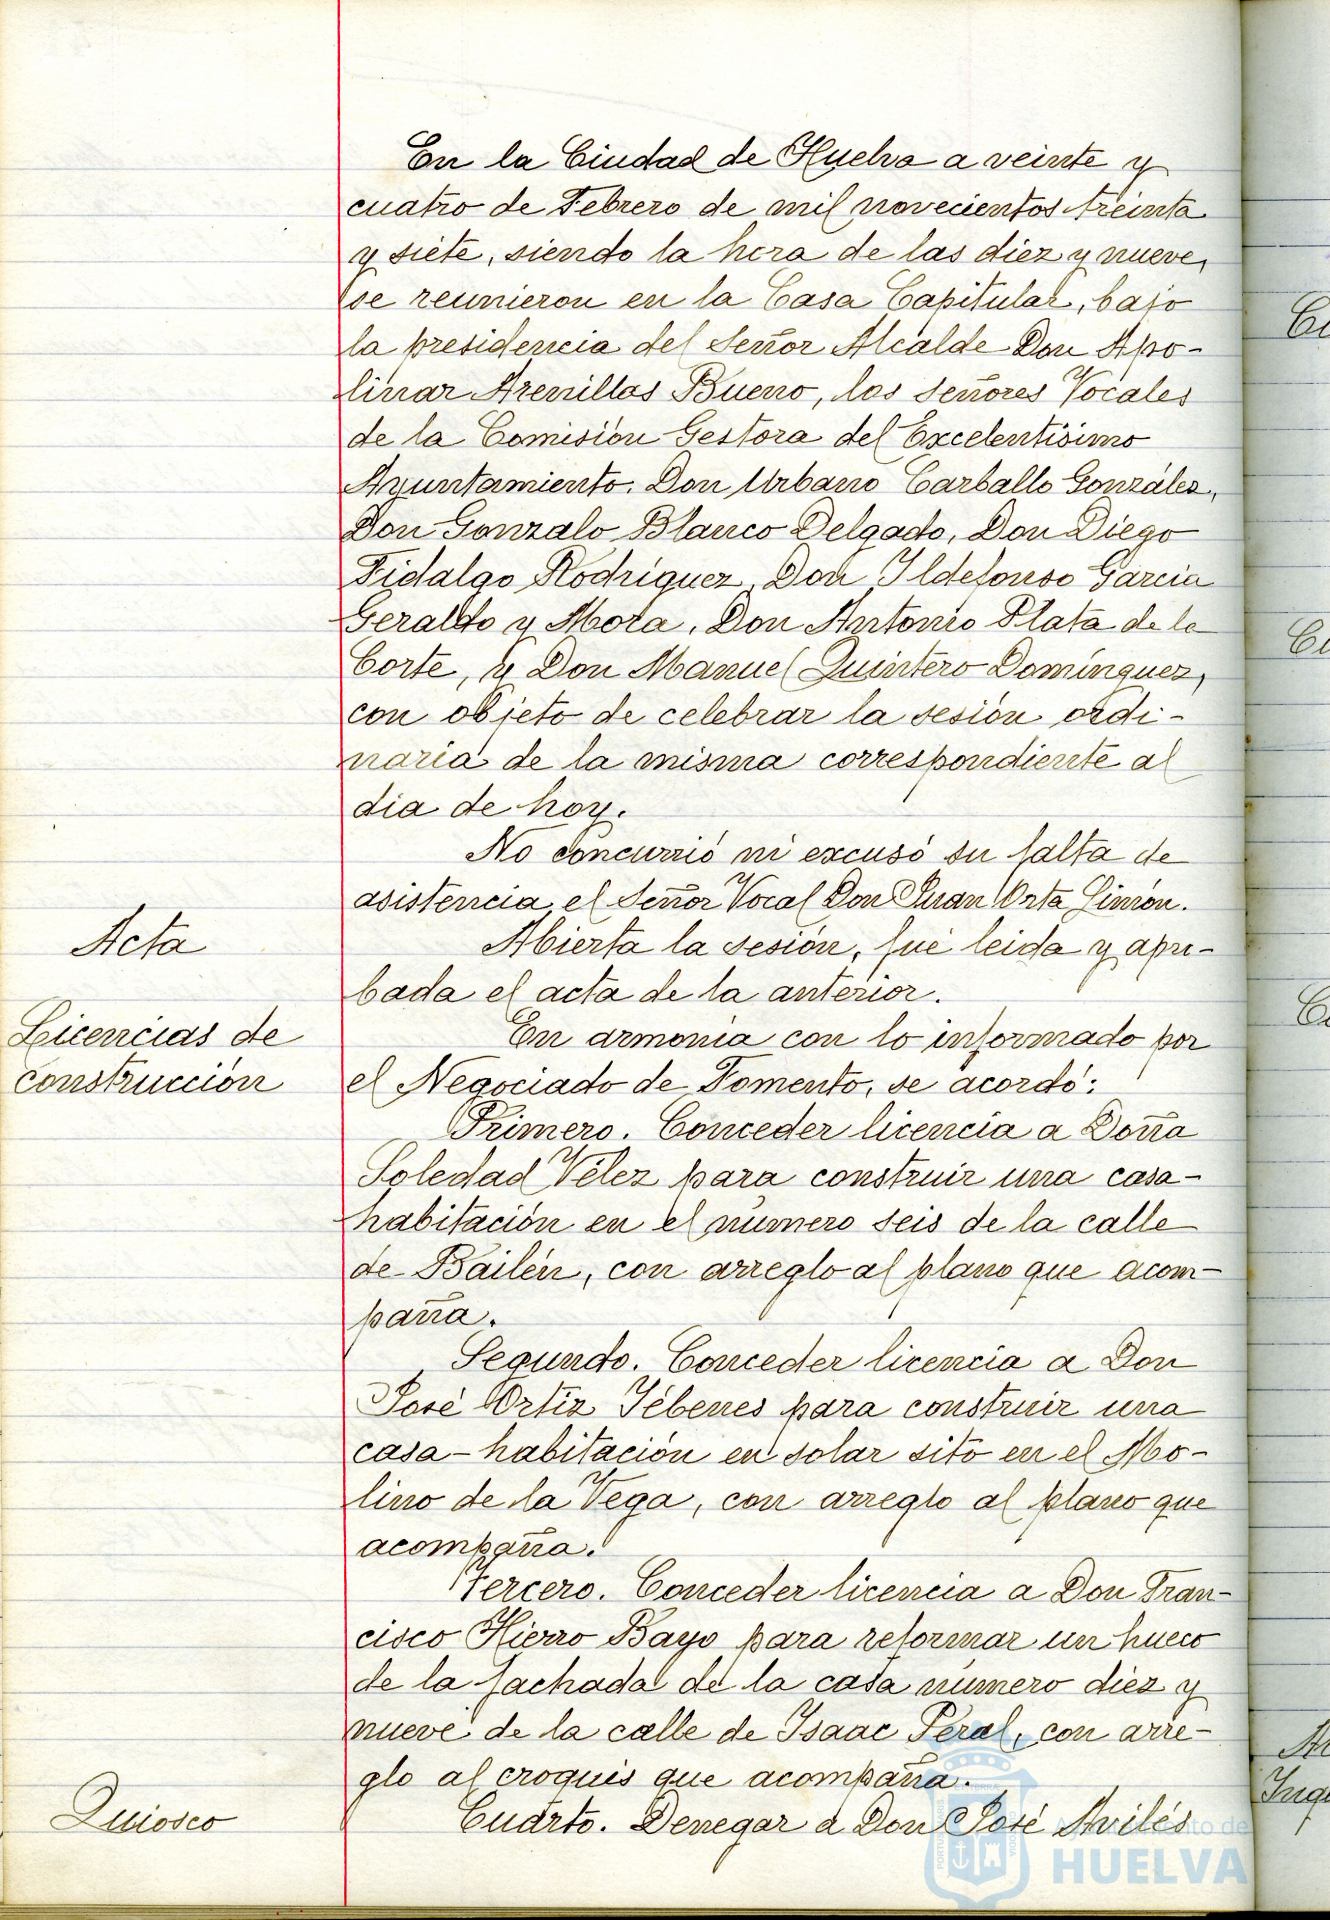 En la Ciudad de Huelva a veinte y
cuatro de Febrero de mil novecientos treinta
y siete, siendo la hora de las diez y nueve,
se reunieron en la Casa Capitular, bajo
la presidencia del Señor Alcalde Don Apo-
linar Arenillas Bueno, los señores Vocales
de la Comisión Gestora del Excelentísimo
Ayuntamiento. Don Urbano Carballo González,
Don Gonzalo Blanco Delgado, Don Diego
Fidalgo Rodríguez, Don Ildefonso Garcia
Geraldo y Mora, Don Antonio Plata de la
Corte, y Don Manuel Quintero Domínguez,
con objeto de celebrar la sesión ordi-
naria de la misma correspondiente al
dia de hoy.
No concurrió ni excusó su falta de
asistencia el Señor Vocal Don Juan Orta Limón.
Acta
Abierta la sesión, fué leida y apro-
bada el acta de la anterior.
Licencias de
construcción
En armonía con lo informado por
el Negociado de Fomento, se acordó:
Primero. Conceder licencia a Doña
Soledad Vélez para construir una casa-
habitación en el número seis de la calle
de Bailén, con arreglo al plano que acom-
paña.
Segundo. Conceder licencia a Don
José Ortiz Tébenes para construir una
casa-habitación en solar sito en el Mo-
lino de la Vega, con arreglo al plano que
acompaña.
Tercero. Conceder licencia a Don Fran-
cisco Hierro Bayo para reformar un hueco
de la fachada de la casa número diez y
nueve de la calle de Isaac Peral, con arre-
glo al croquis que acompaña.
Quiosco
Cuarto. Denegar a Don José Avilés
Ayuntamiento de
HUELVA